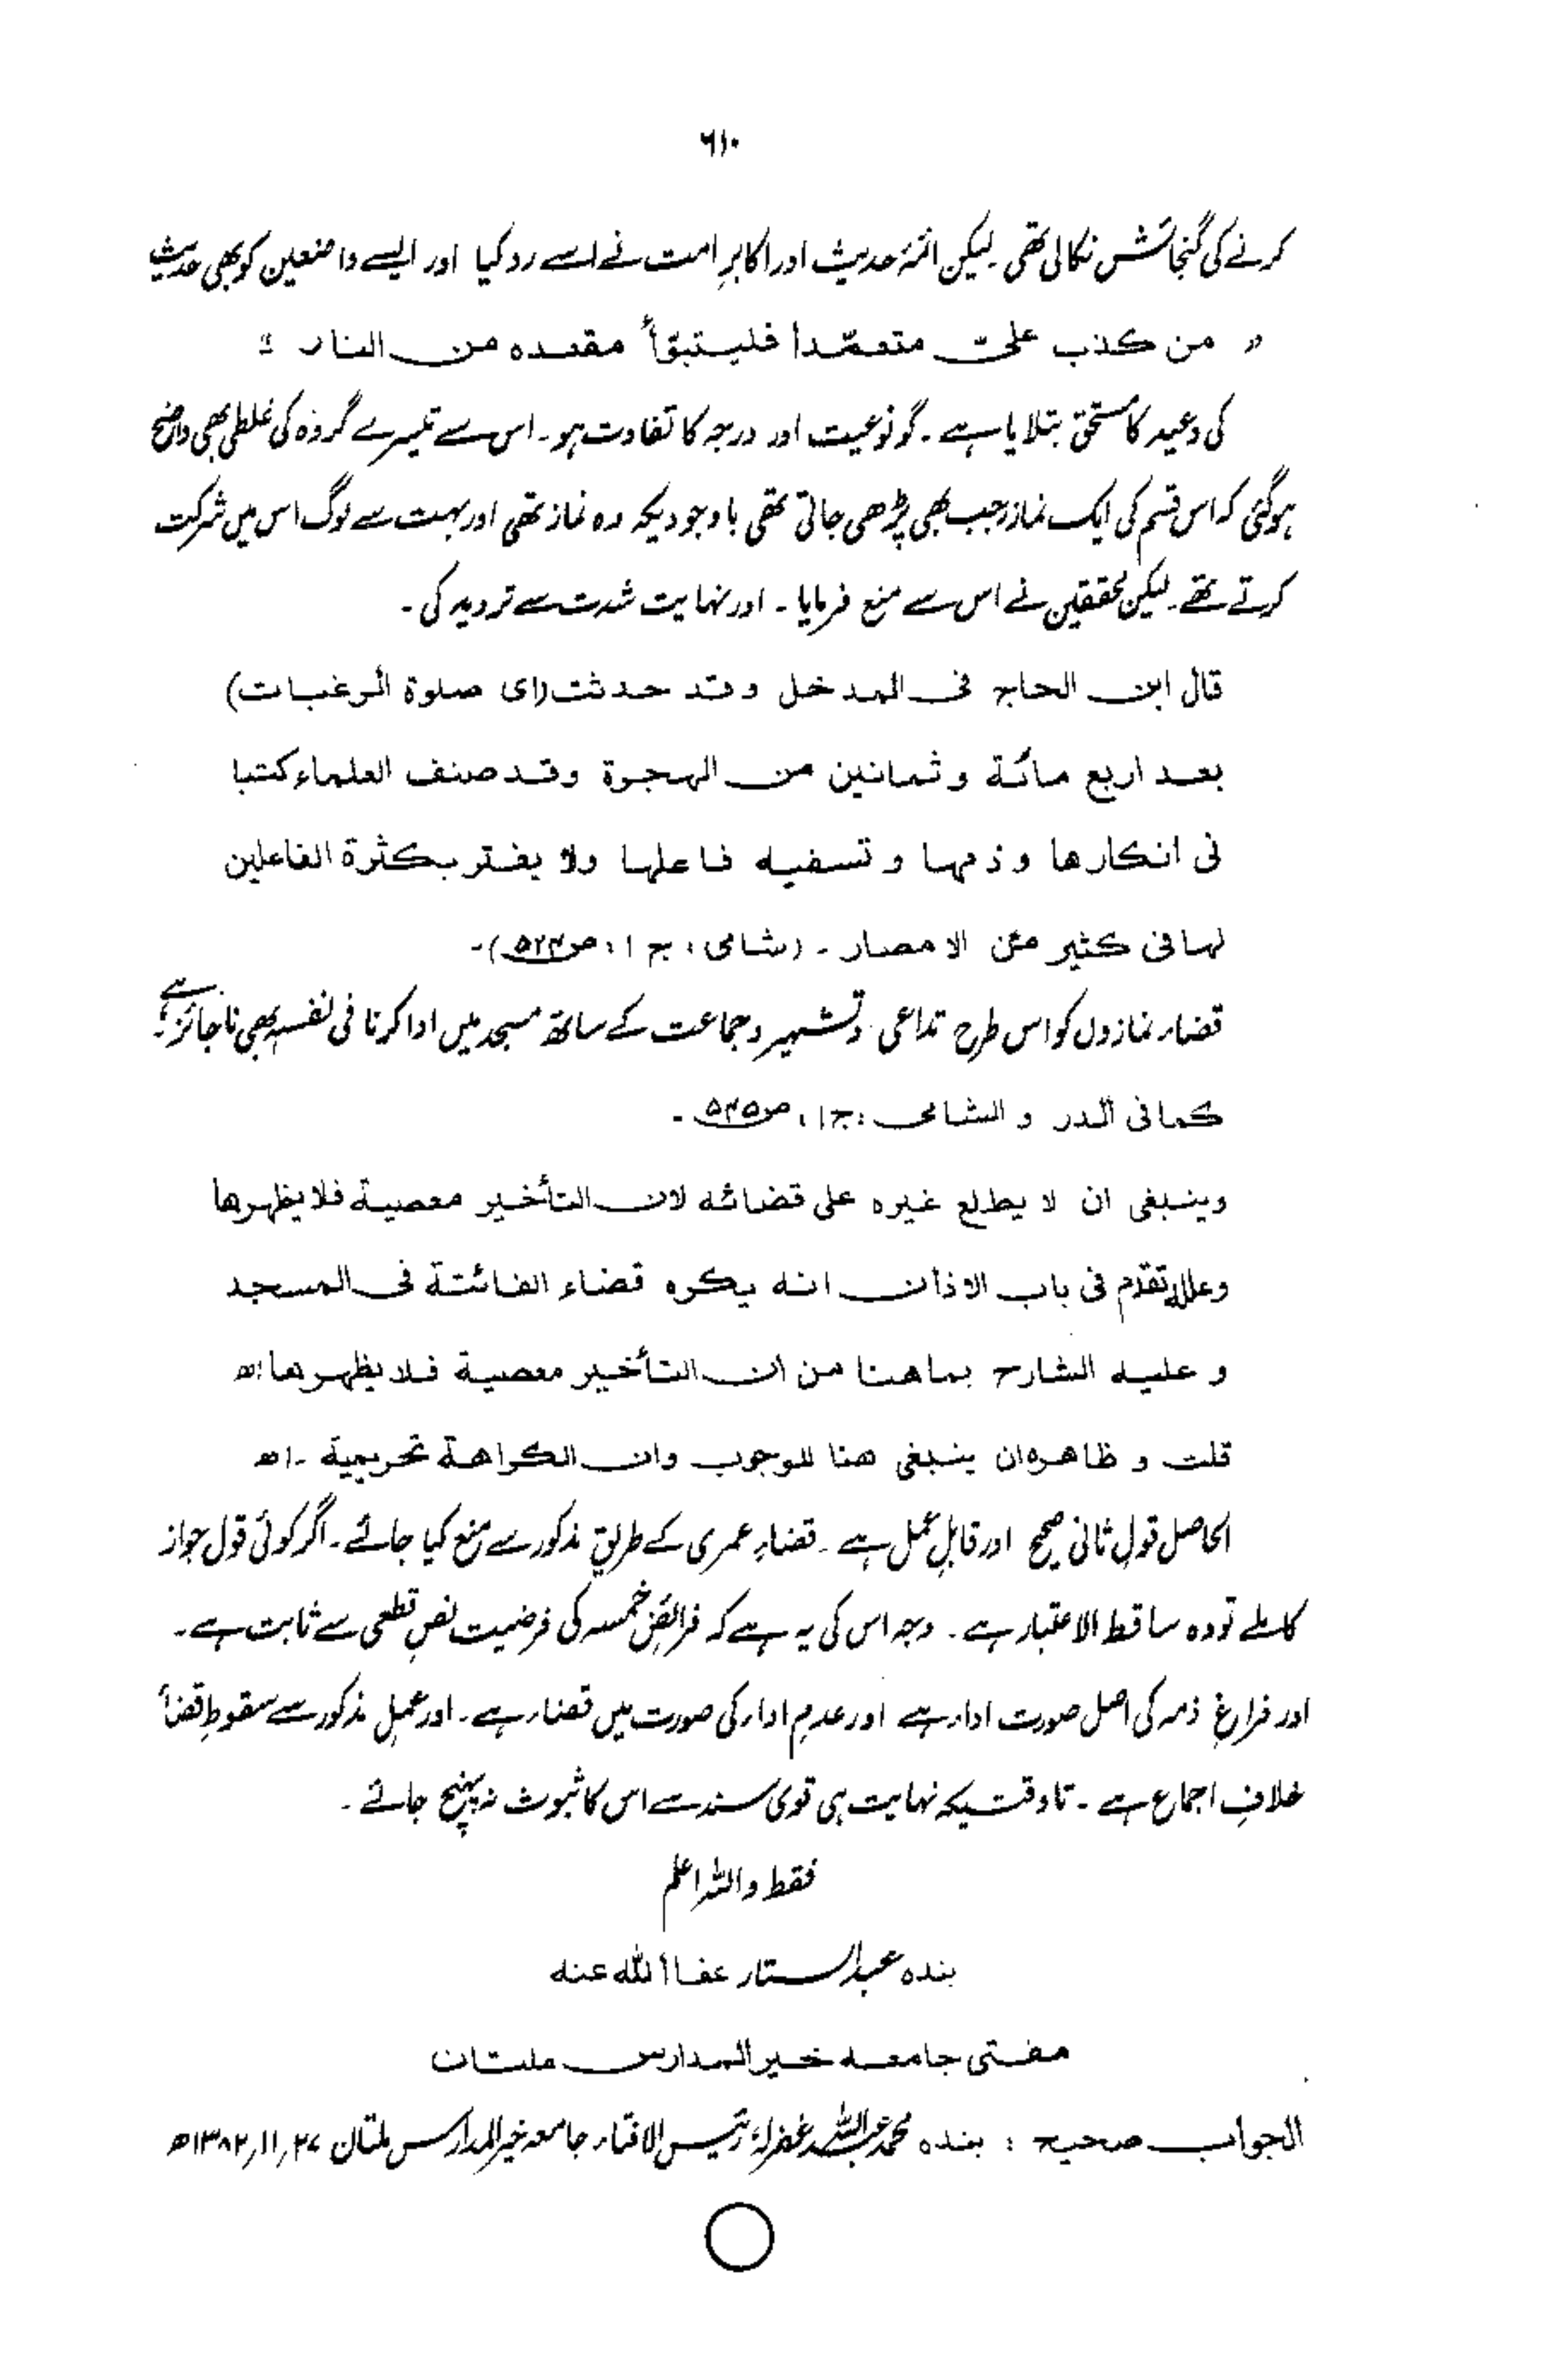 ٦١٠
کرنے کی گنجائش نکالی تھی۔ لیکن ائمۂ حدیث اور اکابرِ امت نے اسے رد کیا اور ایسے واضعین کو بھی حدیث
" من كذب علىّ متعمّداً فليتبوّأ مقعده من النار "
کی وعید کا مستحق بتلایا ہے۔ گو نوعیت اور درجہ کا تفاوت ہو۔ اس سے تیسرے گروہ کی غلطی بھی واضح
ہو گئی کہ اس قسم کی ایک نماز رجب بھی پڑھی جاتی تھی باوجودیکہ وہ نماز تھی اور بہت سے لوگ اس میں شرکت
کرتے تھے۔ لیکن محققین نے اس سے منع فرمایا۔ اور نہایت شدت سے تردید کی۔
قال ابن الحاج فى المدخل وقد حدثت (اى صلوة الرغبات)
بعد اربع مائة وثمانين من الهجرة وقد صنف العلماء كتبا
فى انكارها وذمها وتسفيه فاعلها ولا يغتر بكثرة الفاعلين
لها فى كثير من الامصار ۔ (شامى، ج ١، ص ٥٢٤)۔
قضاء نمازوں کو اس طرح تداعی و تشہیر و جماعت کے ساتھ مسجد میں ادا کرنا فی نفسہٖ بھی ناجائز ہے؛
كما فى الدر والشامى : ج ١، ص ٥٣٥ ۔
وينبغى ان لا يطلع غيره على قضائه لان التأخير معصية فلا يظهرها
تقدّم فى باب الاذان انه يكره قضاء الفائتة فى المسجد
وعليه الشارح بماهنا من ان التأخير معصية فلا يظهرها اھ
قلت وظاهره ان ينبغى هنا للوجوب وان الكراهة تحريمية ۔ اھ
الحاصل قولِ ثانی صحیح اور قابلِ عمل ہے۔ قضاءِ عمری کے طریقِ مذکور سے منع کیا جائے۔ اگر کوئی قول جواز
کا ملے تو وہ ساقط الاعتبار ہے۔ وجہ اس کی یہ ہے کہ فرائضِ خمسہ کی فرضیت نصِ قطعی سے ثابت ہے۔
اور فراغِ ذمہ کی اصل صورت اداء ہے اور عدمِ اداء کی صورت میں قضاء ہے۔ اور عملِ مذکور سے سقوطِ قضأ
خلافِ اجماع ہے۔ تاوقتیکہ نہایت ہی قوی سند سے اس کا ثبوت نہ پہنچ جائے۔
فقط واللہ اعلم
بندہ عبدالستار عفا اللہ عنہ
مفتی جامعہ خیر المدارس ملتان
الجواب صحیح : بندہ محمد عبداللہ غفرلہٗ رئیس الافتاء جامعہ خیر المدارس ملتان ۲۷/۱۱/۱۳۸۲ھ